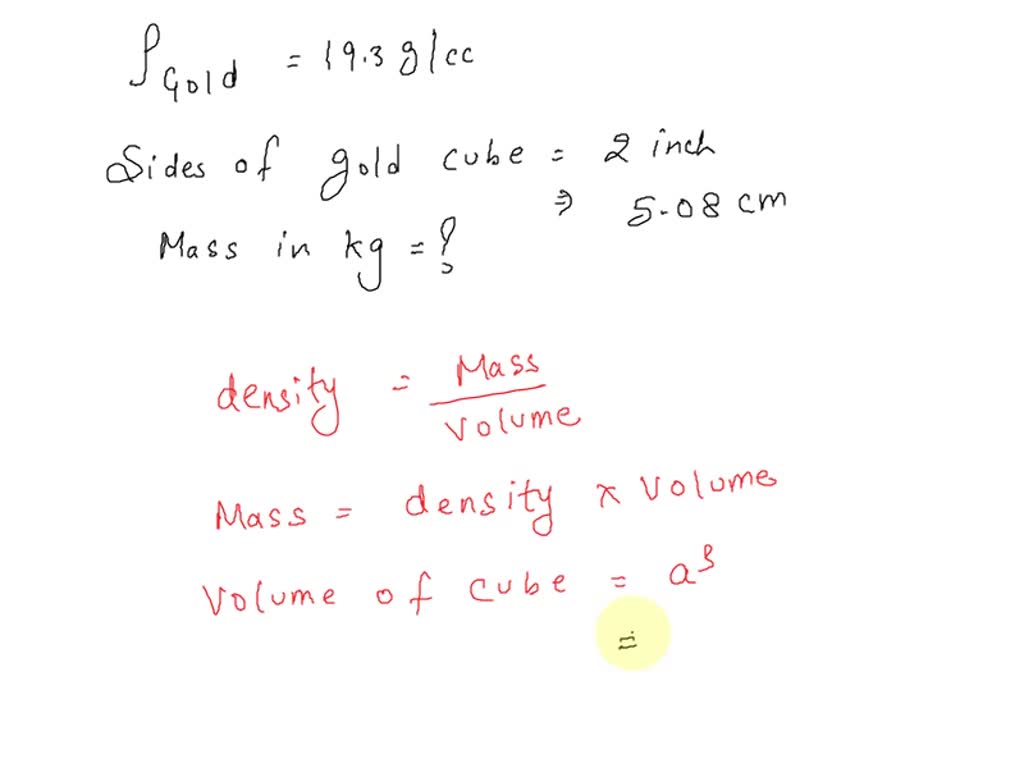 ρ Gold = 19.3 g/cc
Sides of gold cube = 2 inch
⇒ 5.08 cm
Mass in kg = ?
density = Mass / Volume
Mass = density × Volume
Volume of cube = a³
=